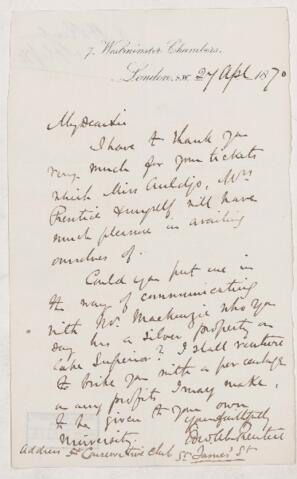 7, Westminster Chambers,
London, S.W. 27 Apl 1870
My dear Sir
I have to thank you
very much for your tickets
which Miss Auldjo, Mrs
Prentice & myself will have
much pleasure in availing
ourselves of.
Could you put me in
the way of communicating
with Mr. Mackenzie who you
say has a silver property on
Lake Superior? I shall venture
to bribe you with a percentage
on any profits I may make,
to be given to your own
University.
Yours faithfully
Edw. Prentice
Address Conservative Club St James' St